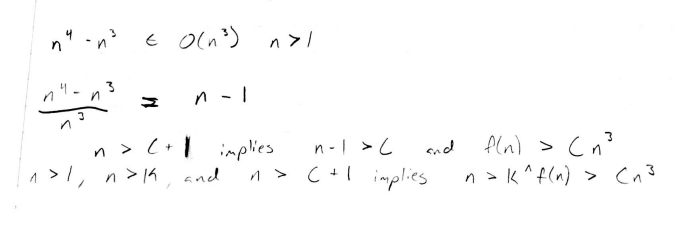 n⁴ - n³ ∈ O(n³) n > 1
n⁴ - n³ / n³ = n - 1
n > C + 1 implies n - 1 > C and f(n) > Cn³
n > 1, n > K, and n > C + 1 implies n > K ^ f(n) > Cn³